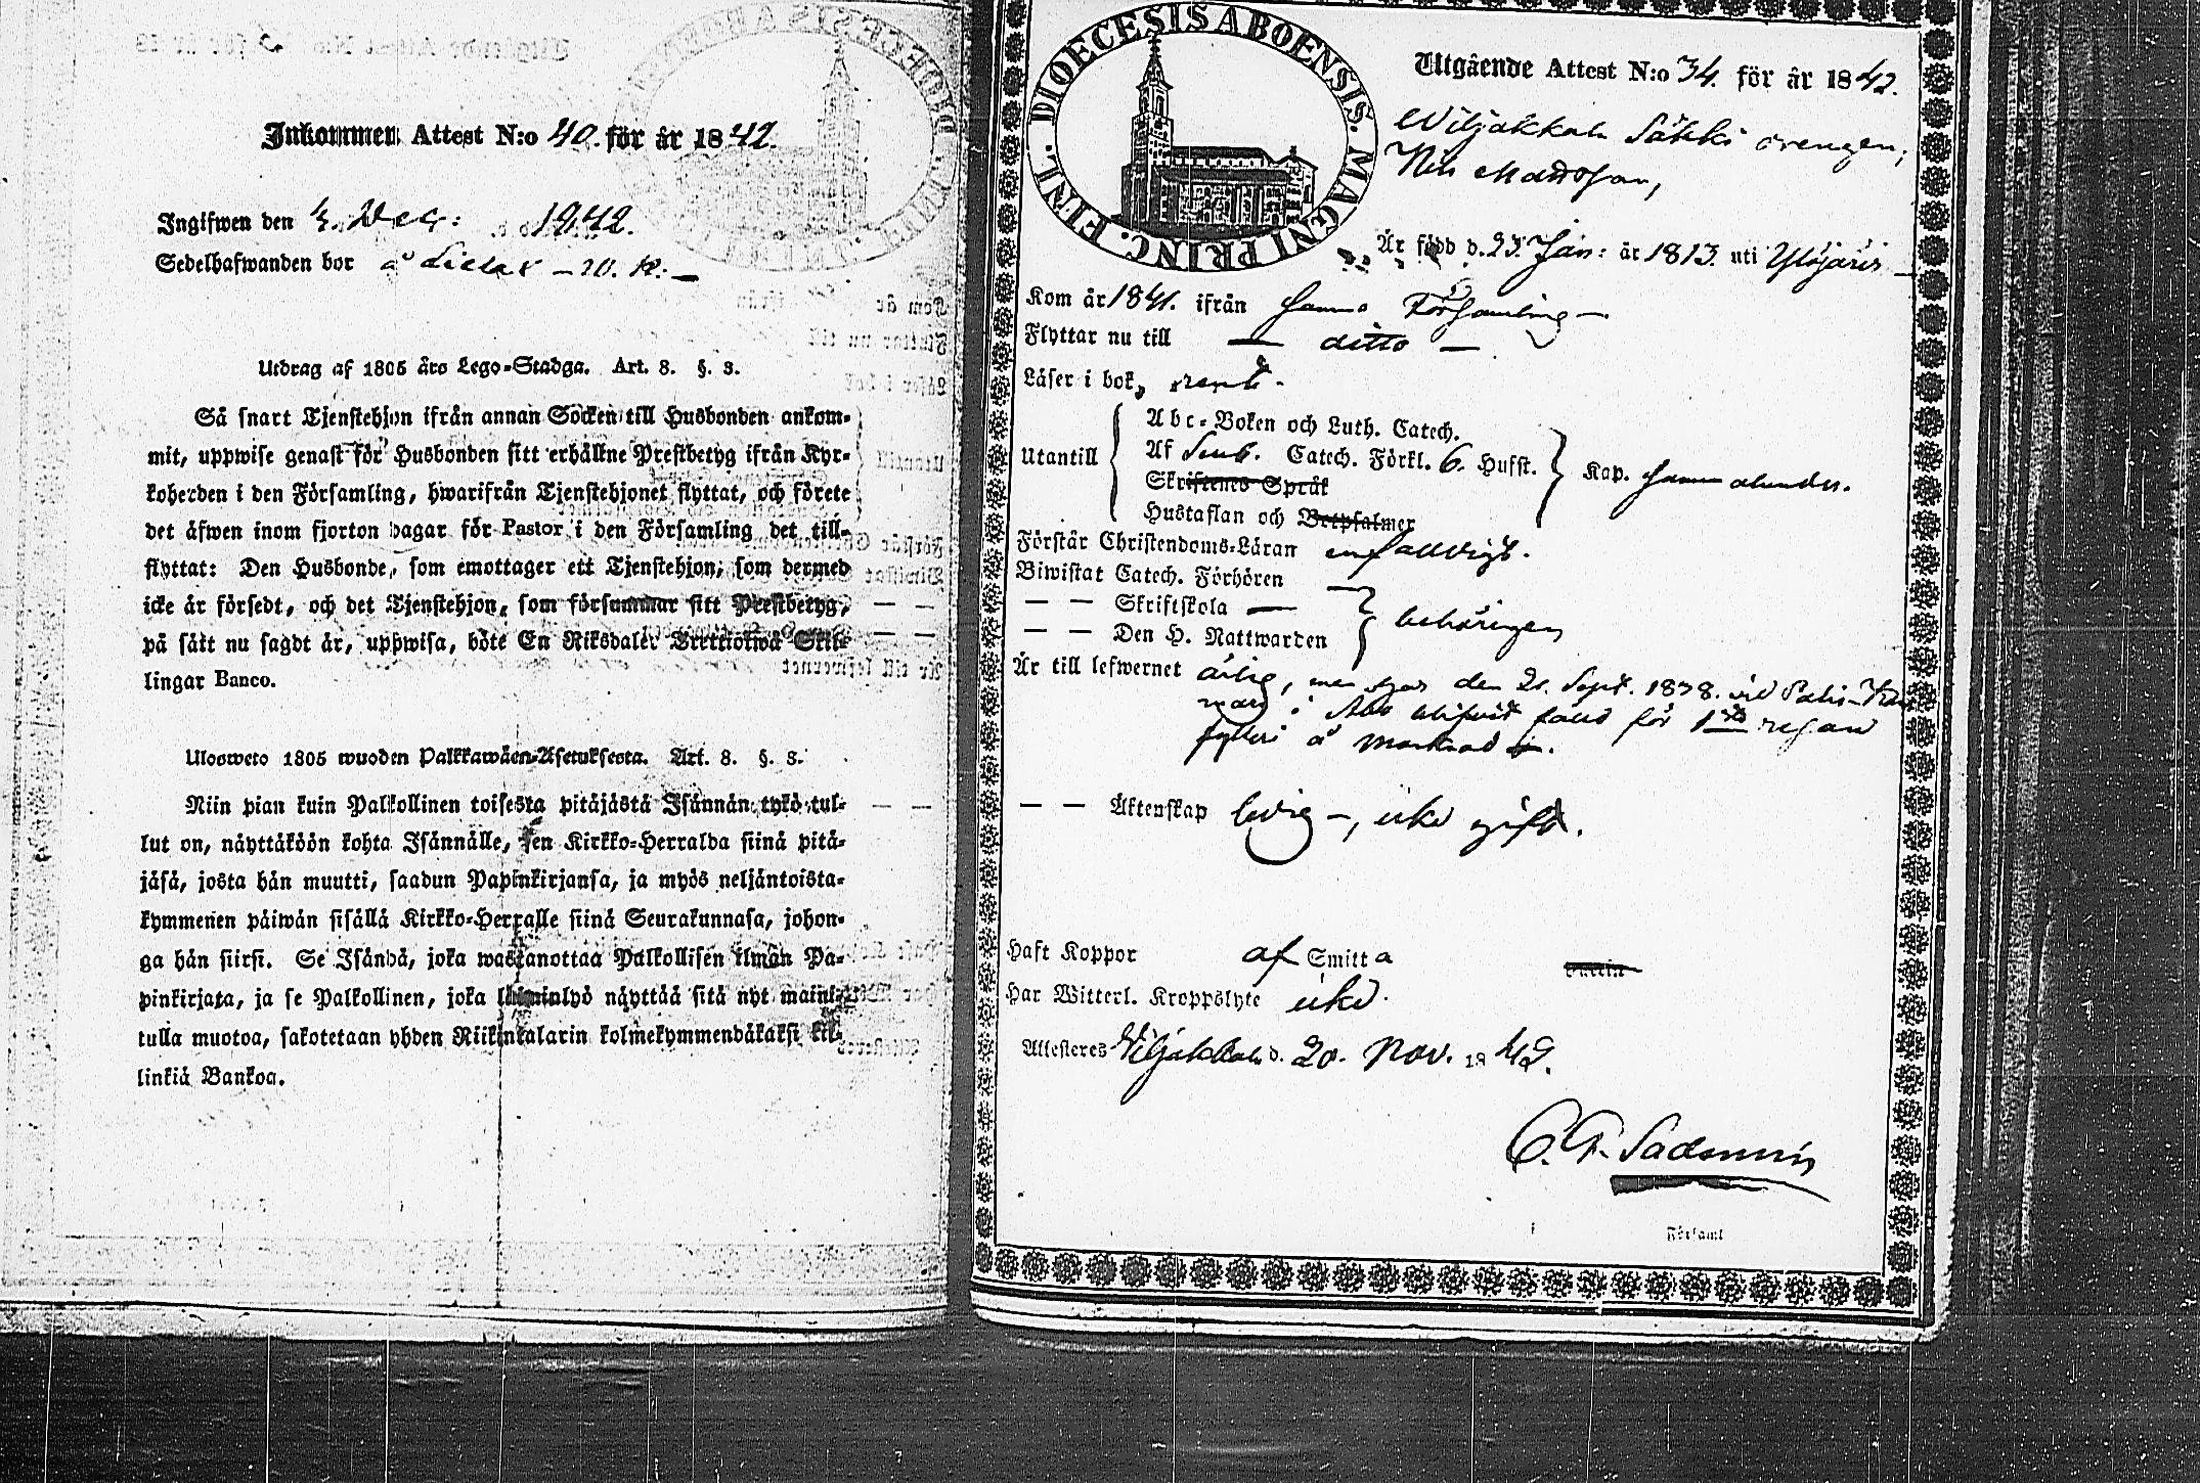 Inkommen Attest N:o 40. för år 1842.
Ingifwen den 4. Dec: 1842.
Sedelhafwanden bor å
Utdrag af 1805 års Lego-Stadga. Art. 8. §. 3.
Så snart Tjenstehjon ifrån annan Socken till Husbonden ankom-
mit, uppwise genast för Husbonden sitt erhållne Prestbetyg ifrån Kyr-
koherden i den Församling, hwarifrån Tjenstehjonet flyttat, och förete
det äfwen inom fjorton dagar för Pastor i den Församling det till-
flyttat: Den Husbonde, som emottager ett Tjenstehjon, som dermed
icke är försedt, och det Tjenstehjon, som försummar sitt Prestbetyg,
på sätt nu sagdt är, uppwisa, böte En Riksdaler Trettiotwå Skil-
lingar Banco.
Ulosweto 1805 wuoden Palkkawäen-Asetuksesta. Art. 8. §. 3.
Niin pian kuin Palkollinen toisesta pitäjästä Isännän tykö tul-
lut on, näyttäköön kohta Isännälle, sen Kirkko-Herralda siinä pitä-
jäsä, josta hän muutti, saadun Papinkirjansa, ja myös neljäntoista-
kymmenen päiwän sisällä Kirkko-Herralle siinä Seurakunnasa, johon-
ga hän siirsi. Se Isändä, joka wastanottaa Palkollisen ilman Pa-
pinkirjata, ja se Palkollinen, joka laiminlyö näyttää sitä nyt maini-
tulla muotoa, sakotetaan yhden Riikintalarin kolmekymmendäkaksi kil-
linkiä Bankoa.
DIOECESIS ABOENSIS. MAGNI PRINC. FINL.
Utgående Attest N:o 34. för år 1842.
Wiljakkala Säkki drengen,
Nils Mattsson,
Är född d. 23. Jan: år 1813. uti Ylöjärvi
Kom år 1841. ifrån samma Församling
Flyttar nu till — ditto —
Läser i bok,
Utantill
Abc-Boken och Luth. Catech.
Af Catech. Förkl. 6. Hufst.
Skriftenes Språk
Hustaflan och Botpsalmer
Kap. sammalunda.
Förstår Christendoms-Läran enfalldigt.
Biwistat Catech. Förhören
— — Skriftskola —
— — Den H. Nattwarden
behörigen
Är till lefwernet ärlig, men den 21. Sept. 1838. wid
i Åbo blifwit fälld för 1sta resan
fylleri å marknad
— — Äktenskap ledig —, icke gift.
Haft Koppor af Smitta
Har Witterl. Kroppslyte icke.
Attesteres Wiljakkala d. 20. Nov. 1842.
Församl